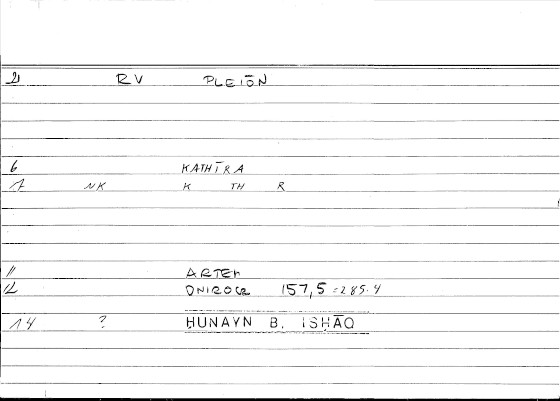 2 RV PLEIŌN
6 KATHĪRA
7 NK K TH R
11 ARTEM
12 ONIROCR 157,5 = 285.4
14 ? HUNAYN B. ISḤĀQ